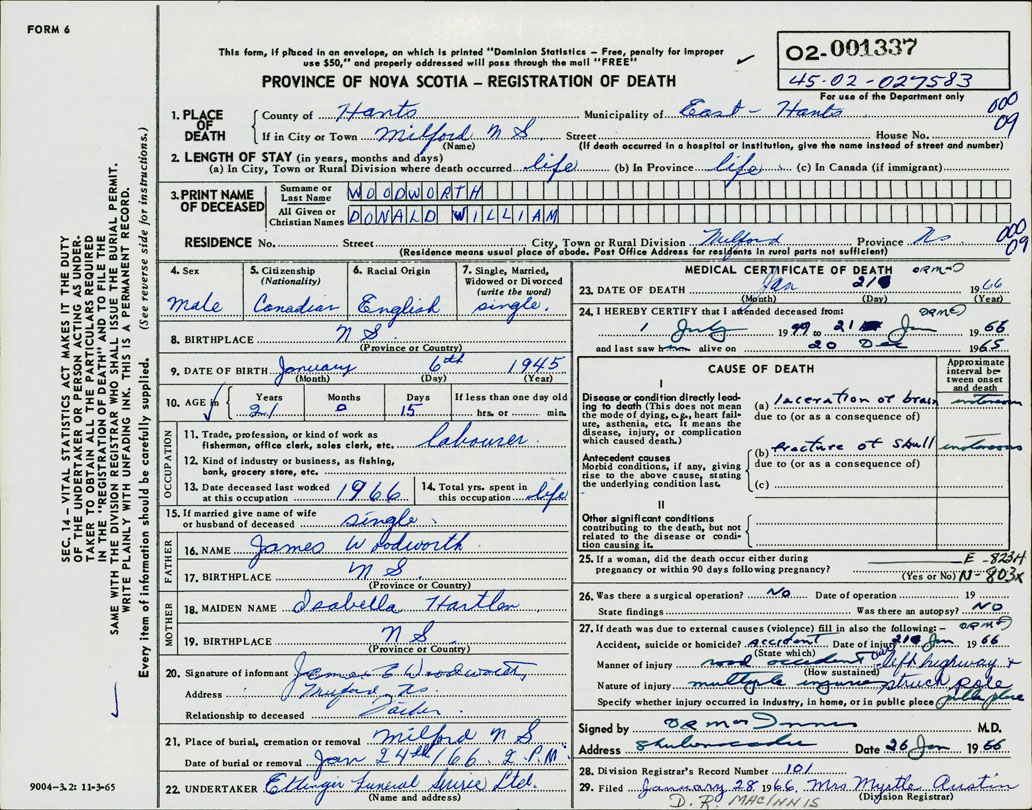 FORM 6
This form, if placed in an envelope, on which is printed "Dominion Statistics — Free, penalty for improper
use $50," and properly addressed will pass through the mail "FREE"
PROVINCE OF NOVA SCOTIA — REGISTRATION OF DEATH
02-001337
45-02-027583
For use of the Department only
SEC. 14 — VITAL STATISTICS ACT MAKES IT THE DUTY
OF THE UNDERTAKER OR PERSON ACTING AS UNDER-
TAKER TO OBTAIN ALL THE PARTICULARS REQUIRED
IN THE "REGISTRATION OF DEATH" AND TO FILE THE
SAME WITH THE DIVISION REGISTRAR WHO SHALL ISSUE THE BURIAL PERMIT.
WRITE PLAINLY WITH UNFADING INK. THIS IS A PERMANENT RECORD.
Every item of information should be carefully supplied. (See reverse side for instructions.)
1. PLACE OF DEATH County of Hants Municipality of East - Hants 000 09
If in City or Town Milford N S Street House No.
(Name) (If death occurred in a hospital or institution, give the name instead of street and number)
2. LENGTH OF STAY (in years, months and days)
(a) In City, Town or Rural Division where death occurred life (b) In Province life (c) In Canada (if immigrant)
3. PRINT NAME OF DECEASED Surname or Last Name WOODWORTH
All Given or Christian Names DONALD WILLIAM
RESIDENCE No. Street City, Town or Rural Division Milford Province NS 000 09
(Residence means usual place of abode. Post Office Address for residents in rural parts not sufficient)
4. Sex Male
5. Citizenship (Nationality) Canadian
6. Racial Origin English
7. Single, Married, Widowed or Divorced (write the word) single.
8. BIRTHPLACE N S.
(Province or Country)
9. DATE OF BIRTH January 6th 1945
(Month) (Day) (Year)
10. AGE in Years 21 Months 0 Days 15 If less than one day old hrs. or min.
OCCUPATION
11. Trade, profession, or kind of work as
fisherman, office clerk, sales clerk, etc. labourer.
12. Kind of industry or business, as fishing,
bank, grocery store, etc.
13. Date deceased last worked at this occupation 1966 14. Total yrs. spent in this occupation life
15. If married give name of wife
or husband of deceased single.
FATHER
16. NAME James Woodworth
17. BIRTHPLACE N S.
(Province or Country)
MOTHER
18. MAIDEN NAME Isabella Hartlen
19. BIRTHPLACE N S.
(Province or Country)
20. Signature of informant James E Woodworth
Address Milford, NS.
Relationship to deceased Father.
21. Place of burial, cremation or removal Milford N S
Date of burial or removal Jan 24th/66. 2 P.M.
22. UNDERTAKER Ettinger Funeral Service Ltd.
(Name and address)
9004—3.2: 11-3-65
MEDICAL CERTIFICATE OF DEATH
23. DATE OF DEATH Jan 21 1966
(Month) (Day) (Year)
24. I HEREBY CERTIFY that I attended deceased from:
1 July 19 to 21 Jan 1966
and last saw h alive on 20 Dec 1965
CAUSE OF DEATH
Approximate interval between onset and death
I
Disease or condition directly lead-
ing to death (This does not mean
the mode of dying, e.g., heart fail-
ure, asthenia, etc. It means the
disease, injury, or complication
which caused death.)
(a) laceration of brain
due to (or as a consequence of)
Antecedent causes
Morbid conditions, if any, giving
rise to the above cause, stating
the underlying condition last.
(b) fracture of skull
due to (or as a consequence of)
(c)
II
Other significant conditions
contributing to the death, but not
related to the disease or condi-
tion causing it.
25. If a woman, did the death occur either during
pregnancy or within 90 days following pregnancy?
(Yes or No)
E-823H
N-803x
26. Was there a surgical operation? NO Date of operation 19
State findings Was there an autopsy? NO
27. If death was due to external causes (violence) fill in also the following:—
Accident, suicide or homicide? accident Date of injury 21 Jan 1966
(State which)
Manner of injury road accident car left highway +
(How sustained)
Nature of injury multiple injuries struck pole
Specify whether injury occurred in industry, in home, or in public place public place
Signed by D R MacInnis M.D.
Address Shubenacadie Date 26 Jan 1966
28. Division Registrar's Record Number 101
29. Filed January 28 1966. Mrs Myrtle Austin
(Division Registrar)
D. R. MACINNIS